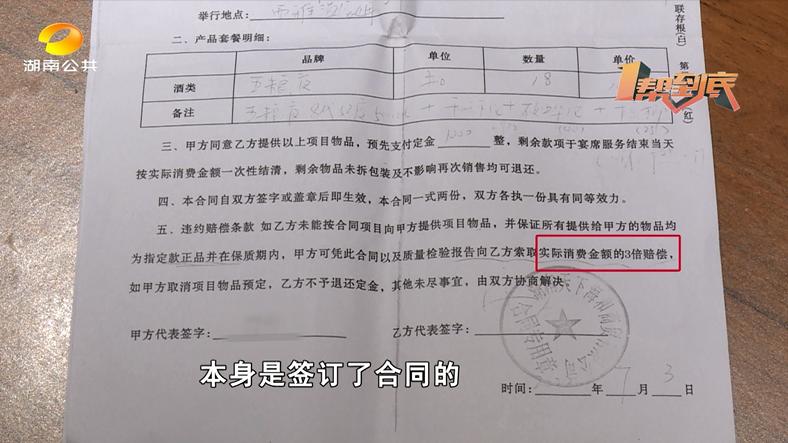 举行地点：
联存根(白)
湖南公共
二、产品套餐明细：
帮到底
品牌 单位 数量 单价
酒类 五粮液 18
备注 五粮液
(红)
三、甲方同意乙方提供以上项目物品，预先支付定金 1000 整，剩余款项于宴席服务结束当天
按实际消费金额一次性结清，剩余物品未拆包装及不影响再次销售均可退还。
四、本合同自双方签字或盖章后即生效，本合同一式两份，双方各执一份具有同等效力。
五、违约赔偿条款 如乙方未能按合同项目向甲方提供项目物品，并保证所有提供给甲方的物品均
为指定款正品并在保质期内，甲方可凭此合同以及质量检验报告向乙方索取实际消费金额的3倍赔偿，
如甲方取消项目物品预定，乙方不予退还定金，其他未尽事宜，由双方协商解决。
甲方代表签字： 乙方代表签字：
合同专用章
本身是签订了合同的
时间： 年 7 月 3 日